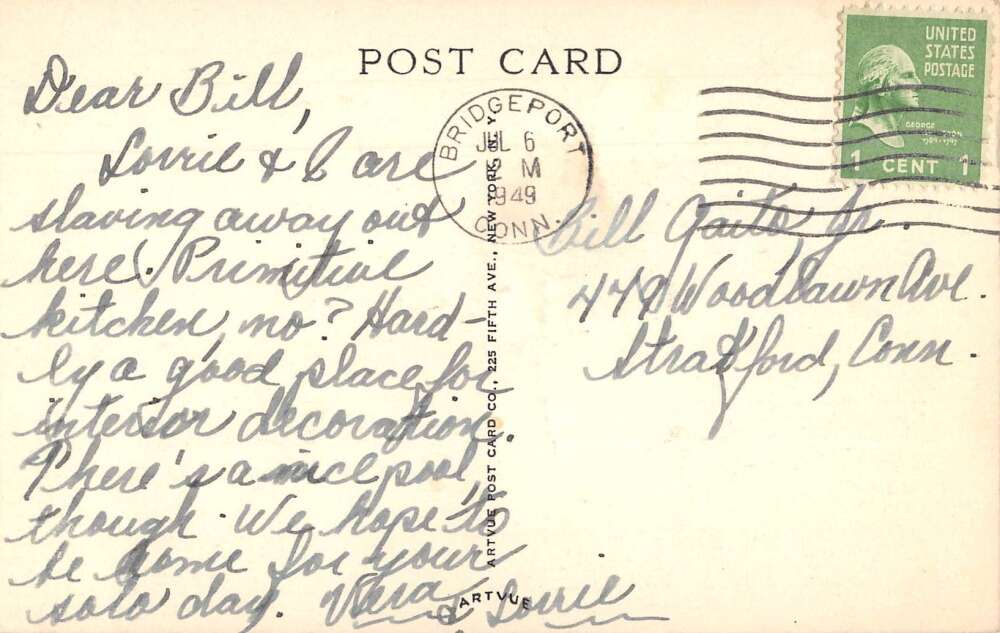 POST CARD
Dear Bill,
Lorrie & I are
slaving away out
here! Primitive
kitchen, no? Hard-
ly a good place for
interior decoration.
There's a nice pool,
though. We hope to
be home for your
solo day. Vera
& Lorrie
BRIDGEPORT
JUL 6
M
1949
CONN.
UNITED
STATES
POSTAGE
GEORGE
1 CENT 1
Bill Gaito, Jr.
Woodlawn Ave.
Stratford, Conn.
ARTVUE POST CARD CO., 225 FIFTH AVE., NEW YORK
ARTVUE